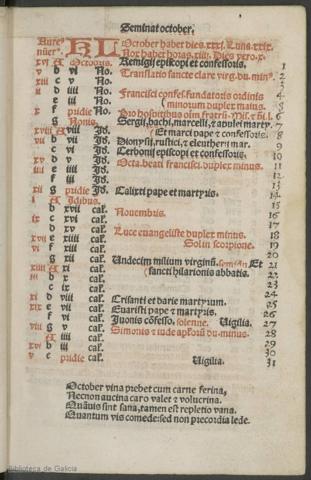 Seminat october.
Aure⁹ nũer⁹. KL October habet dies .xxxi. Luna .xxix.
Nox habet horas .xiiii. Dies vero .x.
xvi A Octobris. Remigij episcopi et confessoris. 1
v b vi No. Translatio sancte clare virg. du. min⁹. 2
xiii c v No. 3
ii d iiii No. Francisci confes. fundatoris ordinis 4
e iii No. minorum duplex maius. 5
x f pridie No. 6
g Nonis. Sergij, bachi, marcelli, et apulei marty. 7
xviii A viii Id. Et marci pape et confessoris. 8
vii b vii Id. Dionysij, rustici, et eleutherij mar. 9
c vi Id. Cerbonij episcopi et confessoris. 10
xv d v Id. Octa. beati francisci. duplex minus. 11
iiii e iiii Id. 12
f iii Id. 13
xii g pridie Id. Calixti pape et martyris. 14
i A Idibus. 15
b xvii cal. Nouembris. 16
ix c xvi cal. 17
d xv cal. Luce euangeliste duplex minus. 18
xvii e xiiii cal. Sol in scorpione. 19
vi f xiii cal. 20
g xii cal. Undecim milium virginũ. semidu. Et 21
xiiii A xi cal. sancti hilarionis abbatis. 22
iii b x cal. 23
c ix cal. 24
xi d viii cal. Crisanti et darie martyrum. 25
e vii cal. Euaristi pape et martyris. 26
xix f vi cal. Juonis cõfesso. solenne. Vigilia. 27
viii g v cal. Simonis et iude apl'orũ du. minus. 28
A iiii cal. 29
xvi b iii cal. 30
v c pridie cal. Vigilia. 31
October vina prebet cum carne ferina,
Necnon aucina caro valet et volucrina.
Quãuis sint sana, tamen est repletio vana.
Quantum vis comede: sed non precordia lede.
Biblioteca de Galicia